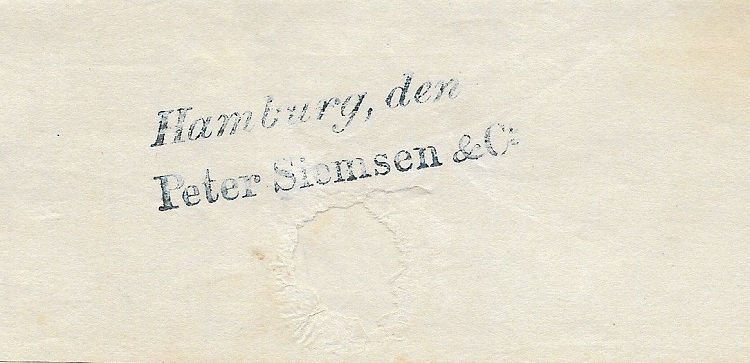 Hamburg, den
Peter Siemsen & Co